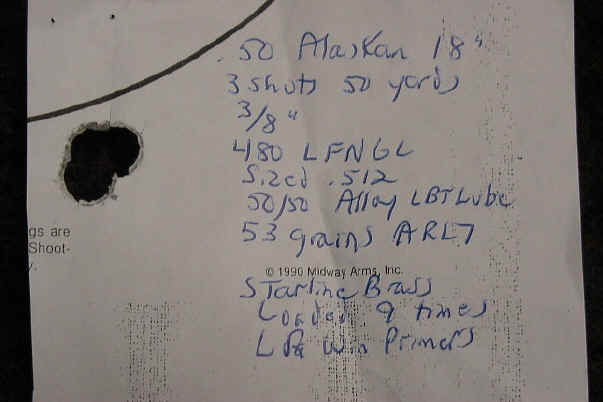 .50 Alaskan 18"
3 shots 50 yards
3/8"
480 LFNGC
Sized .512
50/50 Alloy LBT Lube
53 grains ARL7
gs are
Shoot-
y.
© 1990 Midway Arms, Inc.
STarline Brass
Loaded 9 times
LR Win Primers